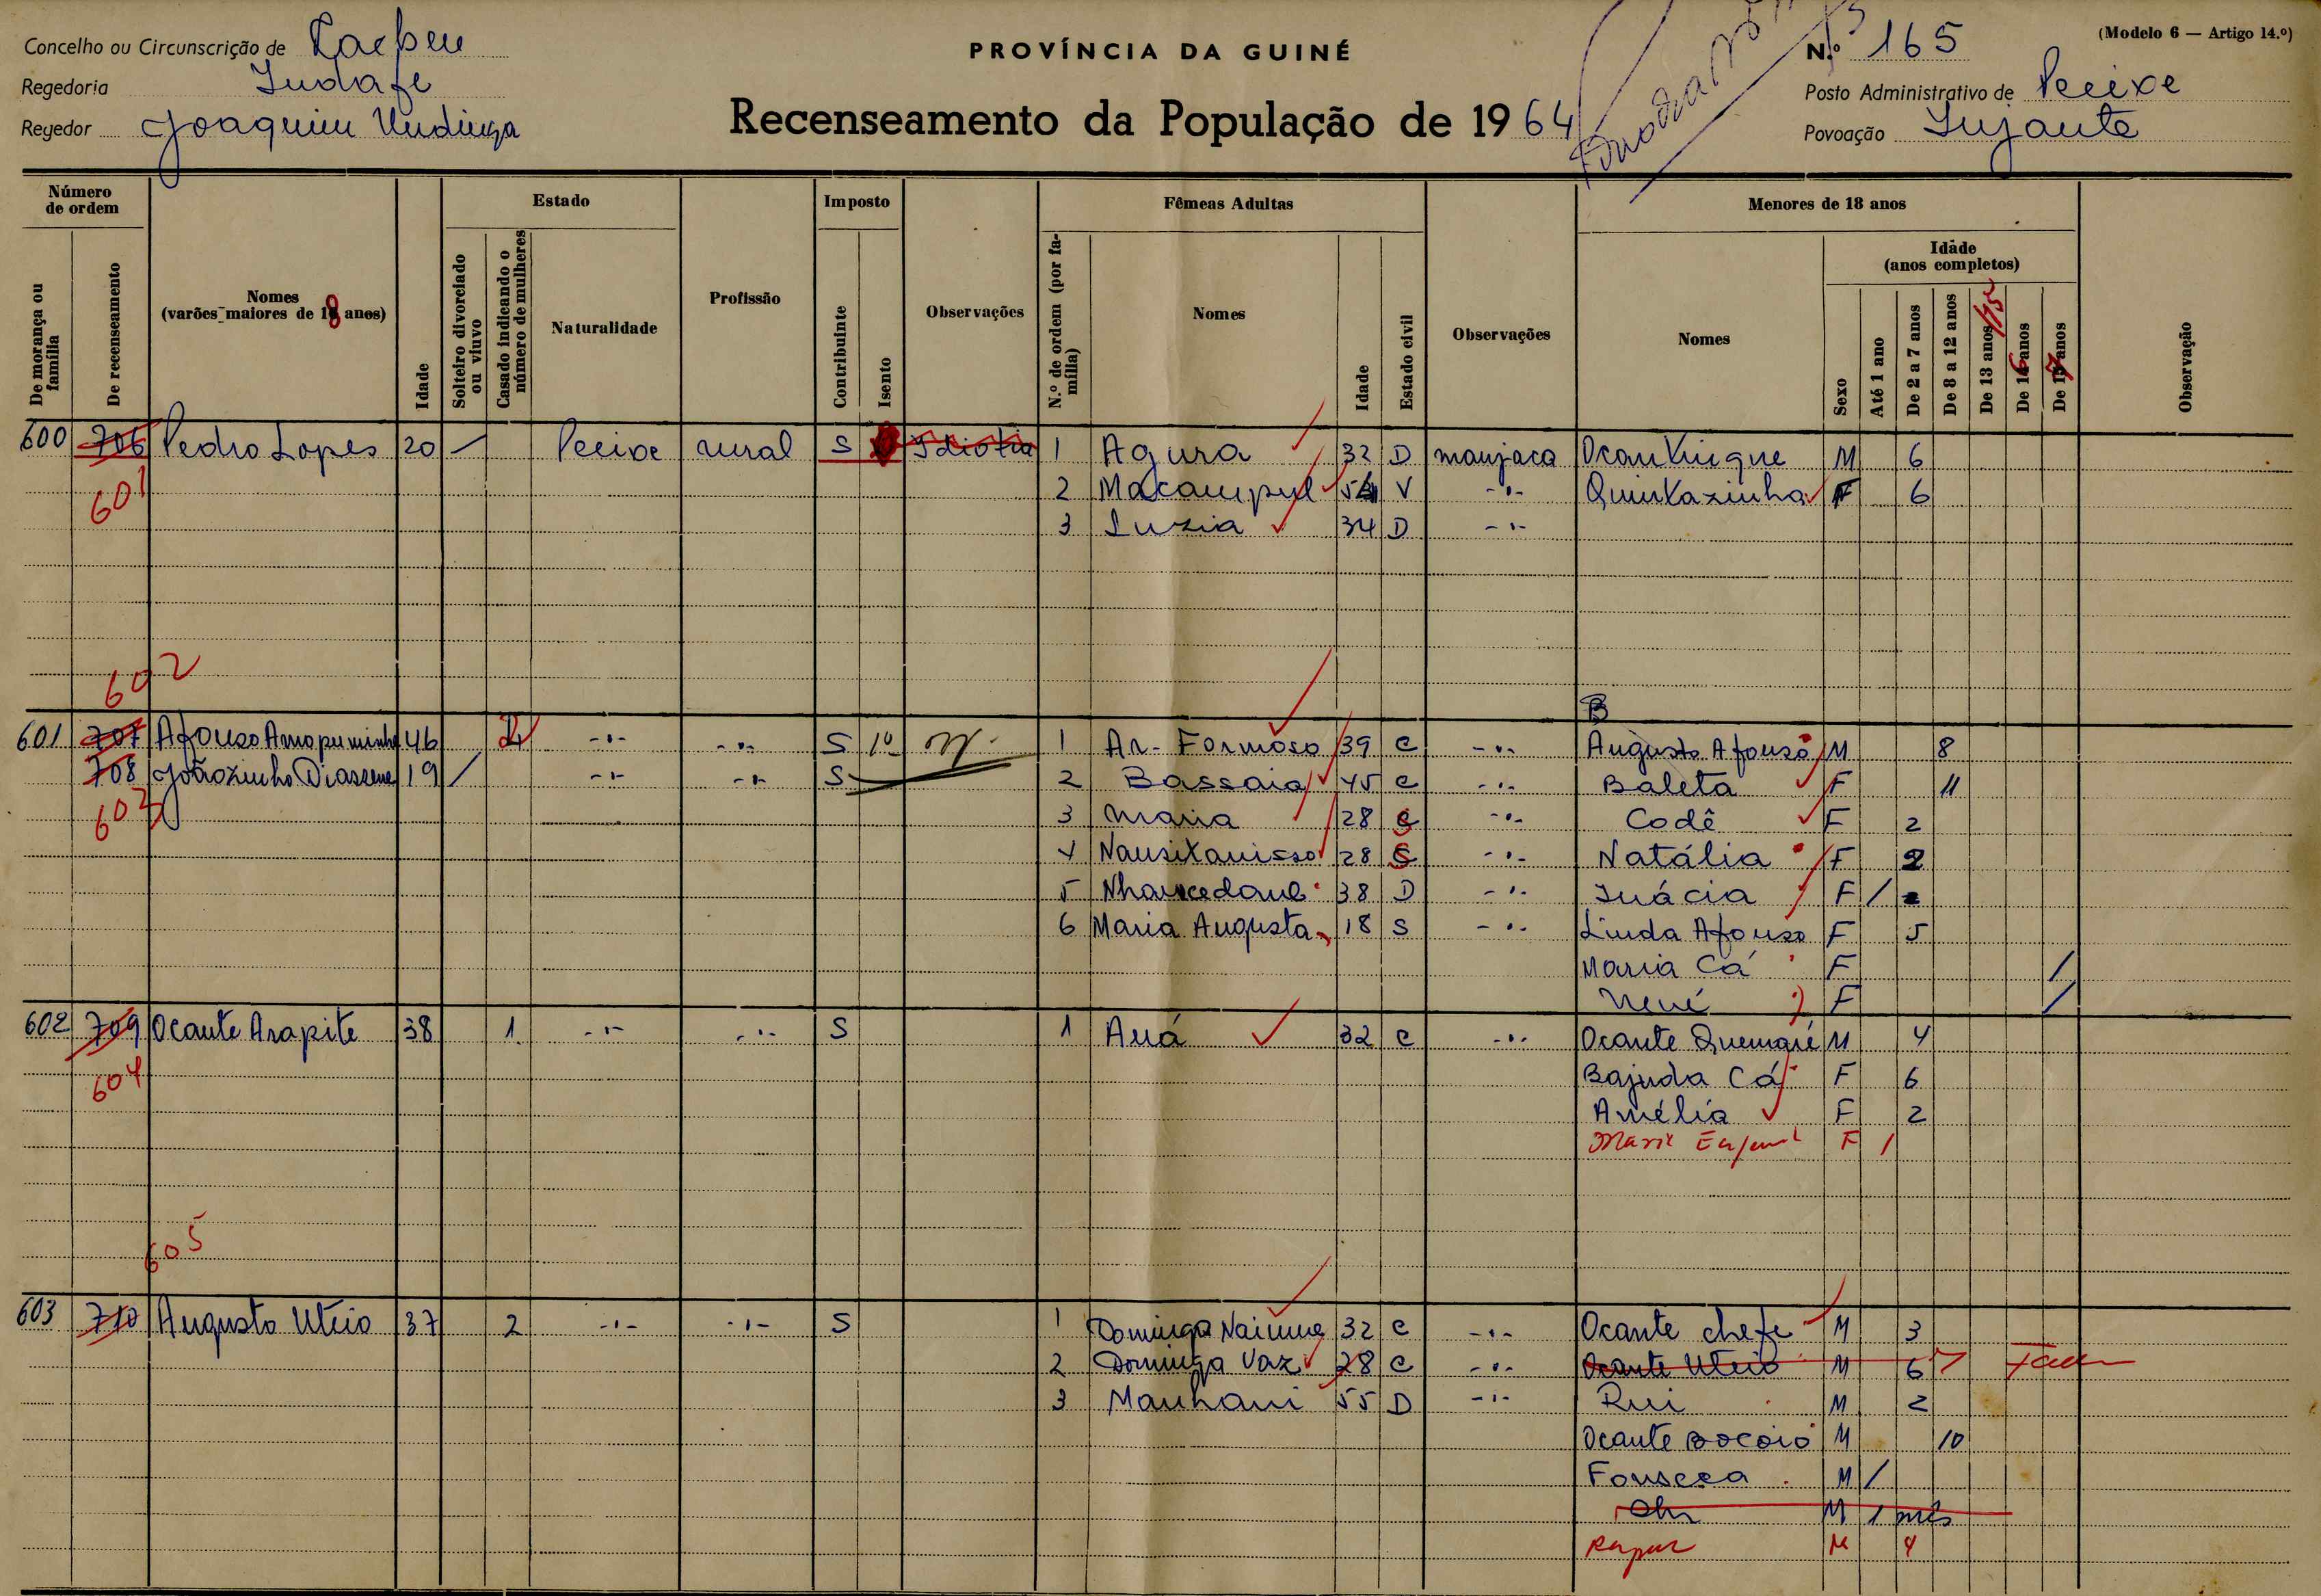 Concelho ou Circunscrição de
Regedoria
Regedor Joaquim
PROVÍNCIA DA GUINÉ
Recenseamento da População de 1964
N.º 165
(Modelo 6 — Artigo 14.º)
Posto Administrativo de Pecixe
Povoação
Número de ordem
De morança ou família
De recenseamento
Nomes (varões maiores de 18 anos)
Idade
Estado
Solteiro divorciado ou viuvo
Casado indicando o número de mulheres
Naturalidade
Profissão
Imposto
Contribuinte
Isento
Observações
Fêmeas Adultas
N.º de ordem (por família)
Nomes
Idade
Estado civil
Observações
Menores de 18 anos
Nomes
Sexo
Idade (anos completos)
Até 1 ano
De 2 a 7 anos
De 8 a 12 anos
De 13 anos /15
De 16 anos
De 17 anos
Observação
600 706 Pedro Lopes 20 Pecixe rural S 1 Agura 32 D manjaca M 6
601 2 V -"- Quintazinha F 6
3 Luzia 34 D -"-
602
601 707 46 -"- -"- S 1 39 C -"- Augusto Afonso M 8
708 Joãozinho 19 / -"- -"- S 2 Bassaia 45 C -"- Baleta F 11
603 3 Maria 28 S -"- Codê F 2
4 28 S -"- Natália F 2
5 38 D -"- Inácia F /
6 Maria Augusta 18 S -"- Linda Afonso F 5
Maria Cá F /
Nené F /
602 709 Ocante Arapite 38 1 -"- -"- S 1 Auá 32 C -"- Ocante M 4
604 Bajuda Cá F 6
Amélia F 2
F 1
605
603 710 Augusto Uteio 37 2 -"- -"- S 1 Dominga 32 C -"- Ocante chefe M 3
2 Dominga Vaz 28 C -"- Ocante Uteio M 6 7
3 Manhani 55 D -"- Rui M 2
Ocante Bocoio M 10
Fonseca M /
M 1 mês
Rapaz M 4